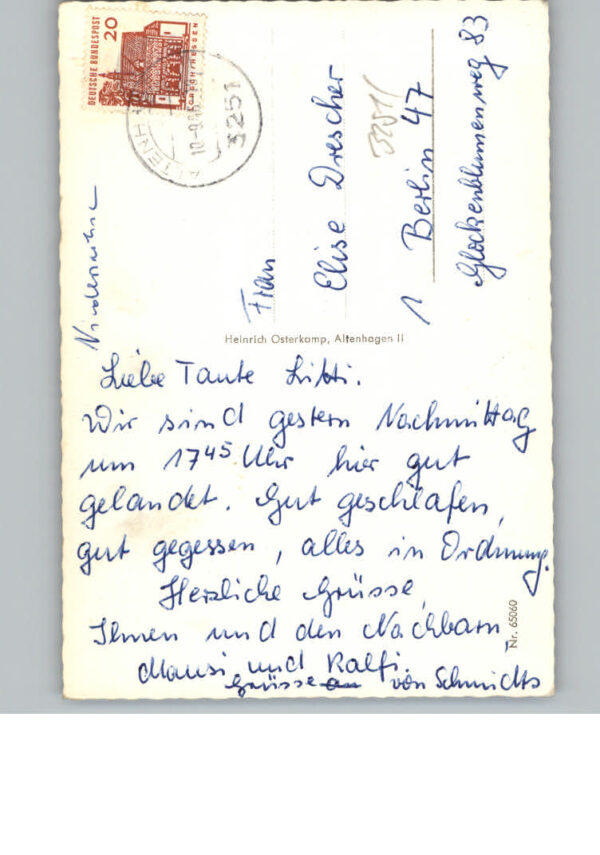 DEUTSCHE BUNDESPOST
20
LORSCH/HESSEN
ALTENH
3251
10-9
Frau
Elise Drescher
1 Berlin 47
Glockenblumenweg 83
3251
Heinrich Osterkamp, Altenhagen II
Liebe Tante Litti.
Wir sind gestern Nachmittag
um 17 45 Uhr hier gut
gelandet. Gut geschlafen,
gut gegessen, alles in Ordnung.
Herzliche Grüsse,
Ihnen und den Nachbarn
Mausi und Ralfi.
Grüsse an von Schmidts
Nr. 65060